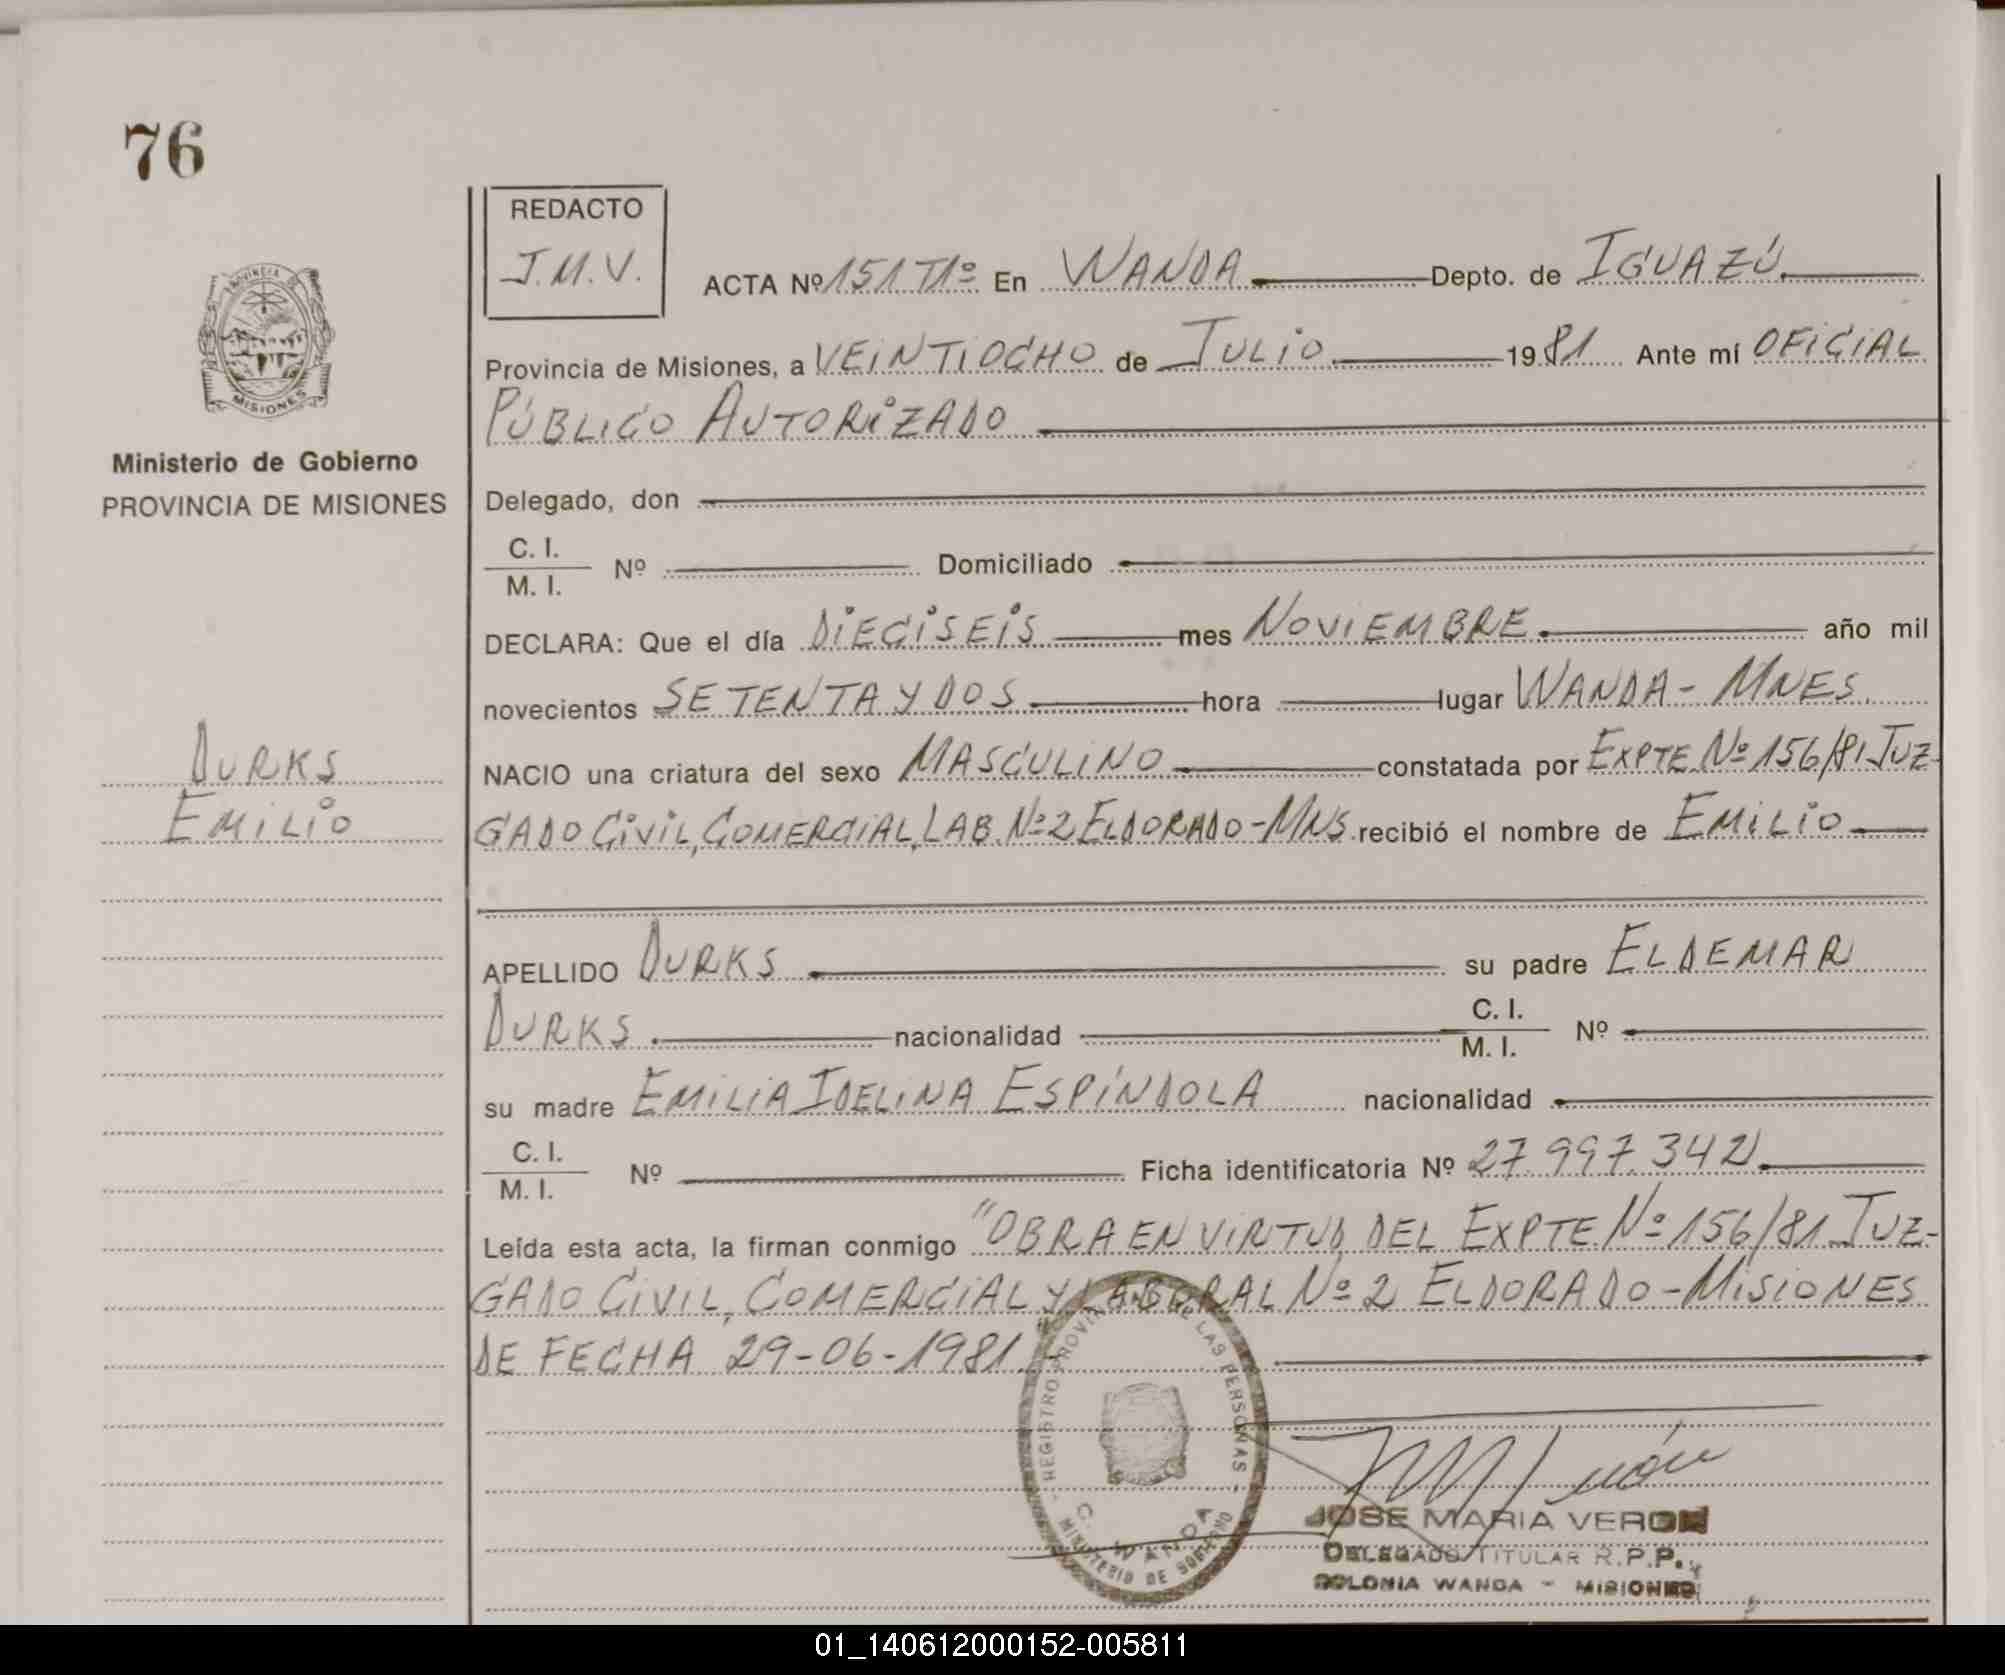 76
REDACTO
J.M.V.
ACTA Nº 151 T1º En WANDA Depto. de IGUAZÚ
Provincia de Misiones, a VEINTIOCHO de JULIO 1981 Ante mí OFICIAL
PÚBLICO AUTORIZADO
PROVINCIA
MISIONES
Ministerio de Gobierno
PROVINCIA DE MISIONES
Delegado, don
C. I.
M. I. Nº Domiciliado
DECLARA: Que el día DIECISEIS mes NOVIEMBRE año mil
novecientos SETENTA Y DOS hora lugar WANDA - MNES.
NACIO una criatura del sexo MASCULINO constatada por EXPTE Nº 156/81 JUZ-
GADO CIVIL, COMERCIAL, LAB. Nº 2 ELDORADO - MNS. recibió el nombre de EMILIO
DURKS
EMILIO
APELLIDO DURKS su padre ELDEMAR
DURKS nacionalidad C. I.
M. I. Nº
su madre EMILIA IDELINA ESPÍNDOLA nacionalidad
C. I.
M. I. Nº Ficha identificatoria Nº 27.997.342
Leída esta acta, la firman conmigo "OBRA EN VIRTUD DEL EXPTE Nº 156/81 JUZ-
GADO CIVIL, COMERCIAL Y LABORAL Nº 2 ELDORADO - MISIONES
DE FECHA 29-06-1981
REGISTRO PROVINCIAL DE LAS PERSONAS
C. WANDA
MINISTERIO DE GOBIERNO
JOSE MARIA VERON
DELEGADO TITULAR R.P.P.
COLONIA WANDA - MISIONES
01_140612000152-005811